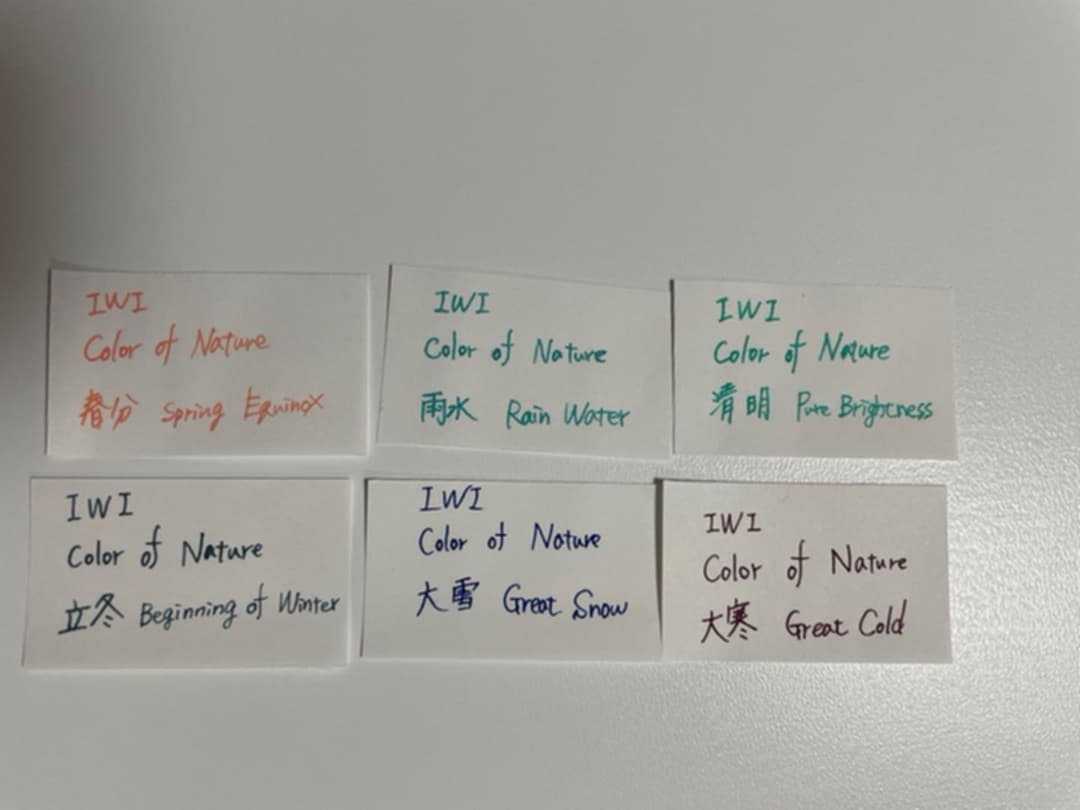 IWI
Color of Nature
春分 Spring Equinox
IWI
Color of Nature
雨水 Rain Water
IWI
Color of Nature
清明 Pure Brightness
IWI
Color of Nature
立冬 Beginning of Winter
IWI
Color of Nature
大雪 Great Snow
IWI
Color of Nature
大寒 Great Cold